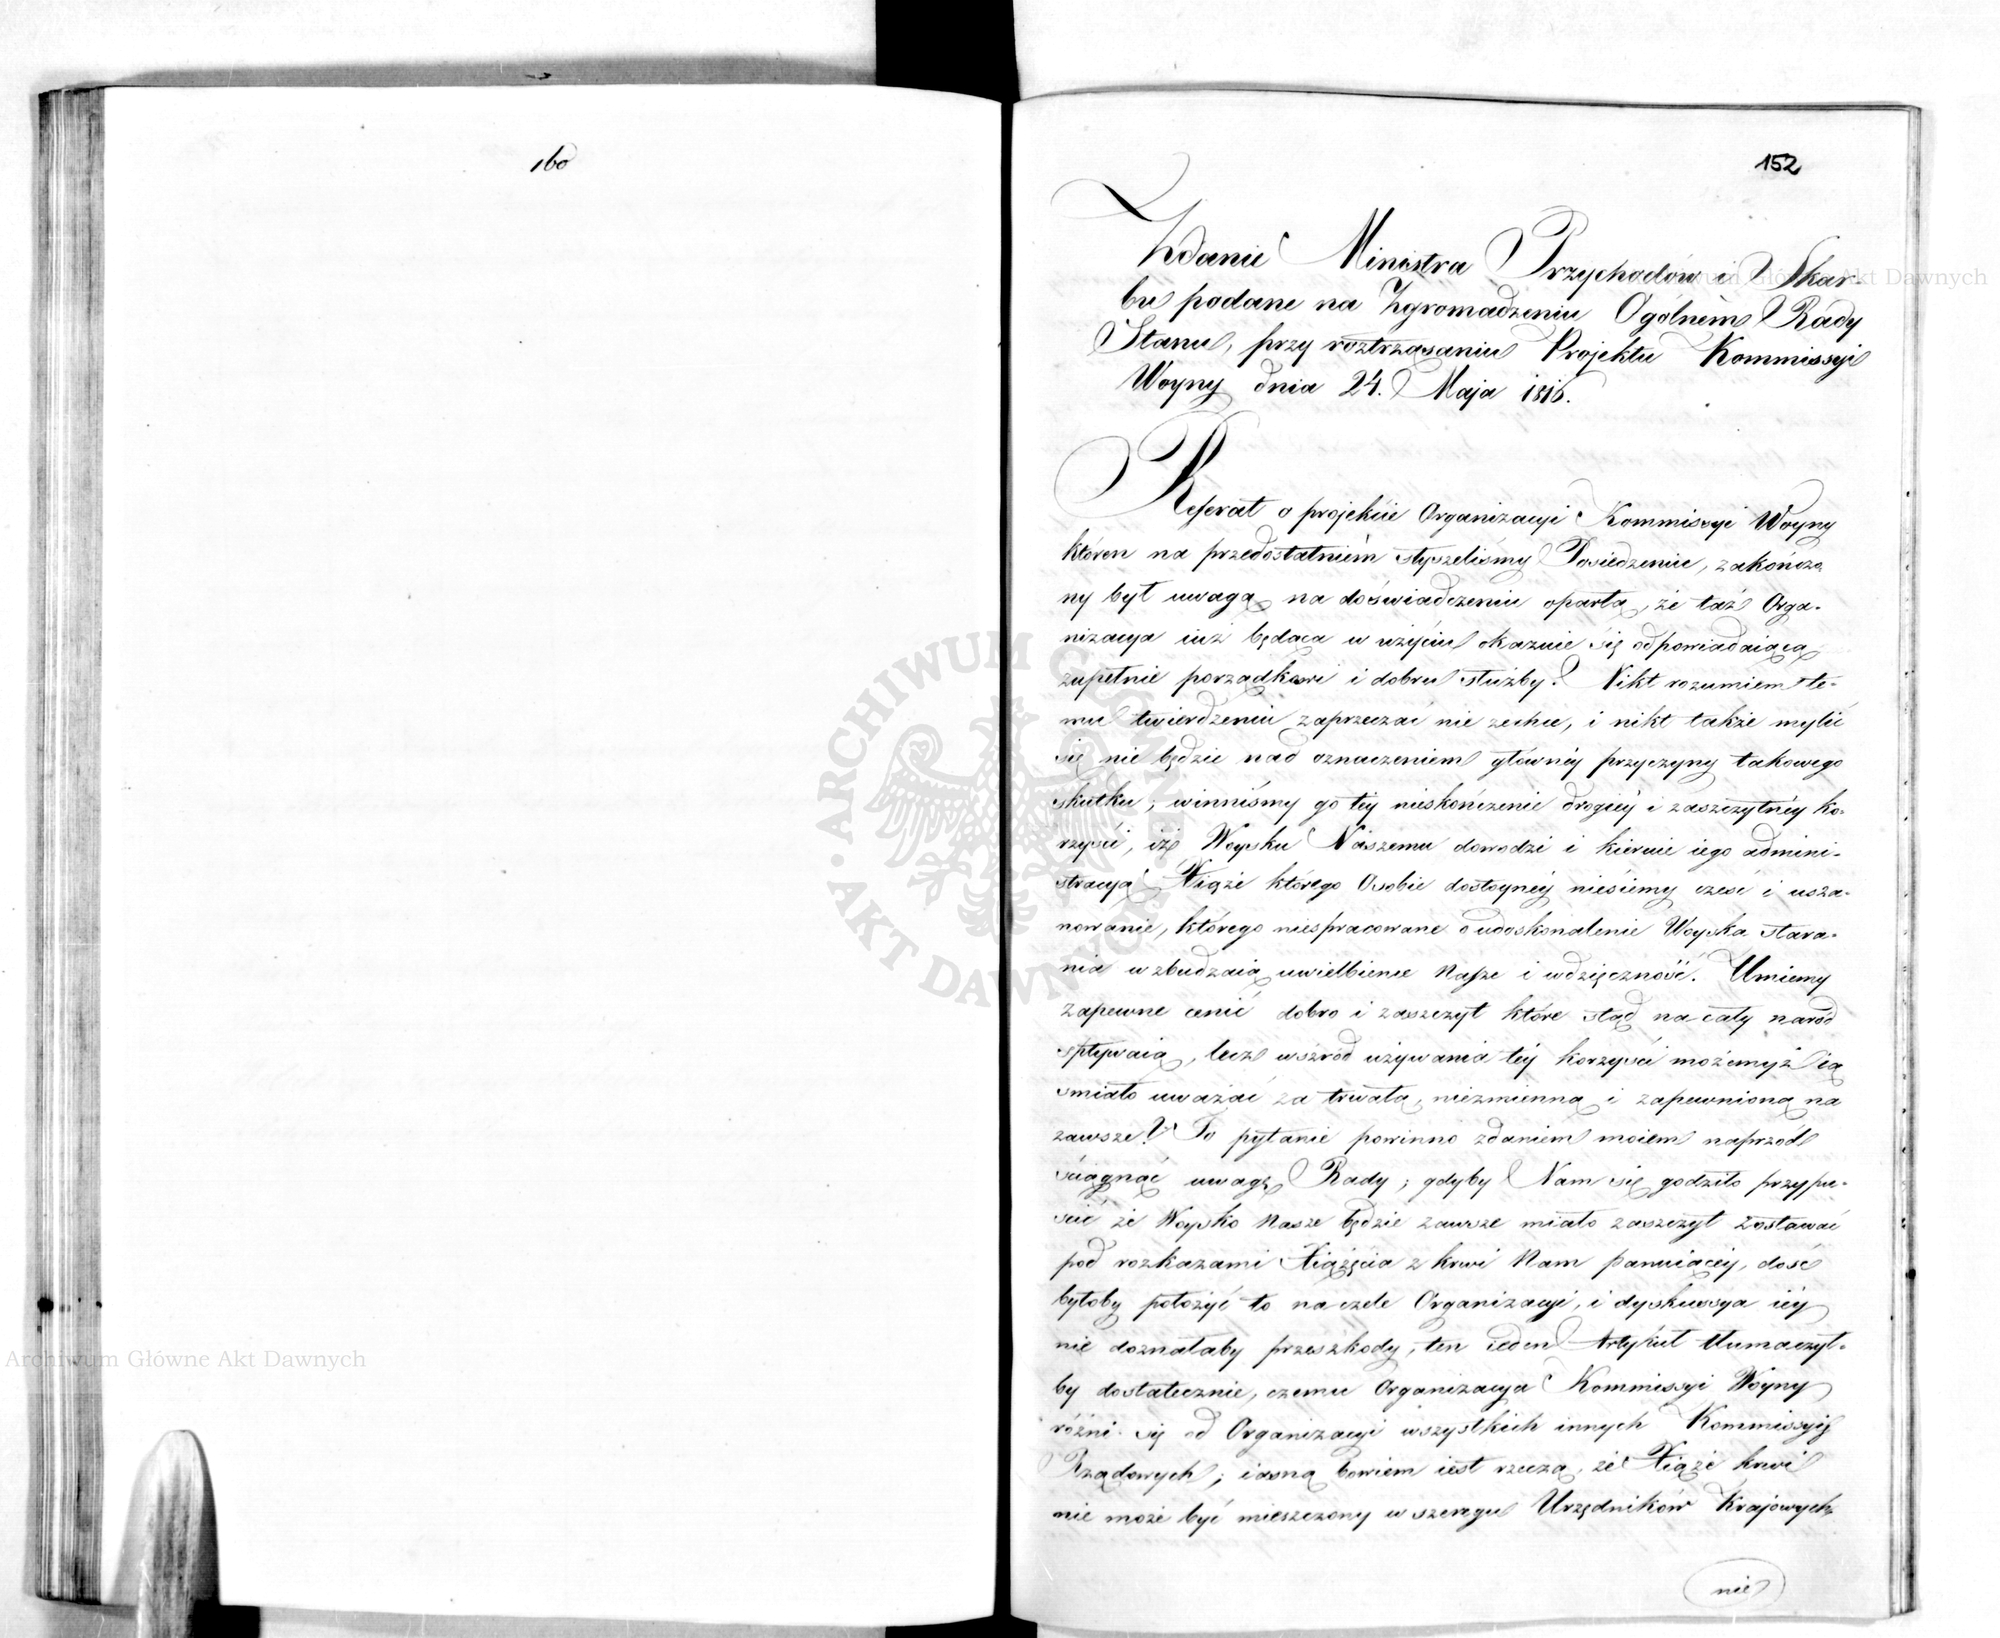 160
152
Zdanie Ministra Przychodów i Skar
bu podane na Zgromadzeniu Ogólném Rady
Stanu, przy roztrząsaniu Projektu Kommissyi
Woyny dnia 24. Maja 1816.
Referat o projekcie Organizacyi Kommissyi Woyny
któren na przedostatniém słyszeliśmy Posiedzenie, zakończo
ny był uwagą na doświadczeniu opartą, że taż Orga-
nizacya iuż będąca w użyciu okazuie się odpowiadaiącą
zupełnie porządkowi i dobru służby. Nikt rozumiem te-
mu twierdzeniu zaprzeczać nie zechce, i nikt także mylić
się nie będzie nad oznaczeniem główney przyczyny takowego
skutku; winniśmy go tey nieskończenie drogiey i zaszczytney ko-
rzyści, iż Woysku Naszemu dowodzi i kieruie iego admini-
stracyą Xiąże którego Osobie dostoyney niesiemy cześć i usza-
nowanie, którego niespracowane o udoskonalenie Woyska stara-
nia wzbudzaią uwielbienie Nasze i wdzięczność. Umiemy
zapewne cenić dobro i zaszczyt które stąd na cały naród
spływaią, lecz wsźród używania tey korzyści możemyż ią
smiało uważać za trwałą, niezmienną i zapewnioną na
zawsze? To pytanie powinno zdaniem moiem naprzód
ściągnąć uwagę Rady; gdyby Nam się godziło przypu-
scić że Woysko Nasze będzie zawsze miało zaszczyt zostawać
pod rozkazami Xiążęcia z krwi Nam panuiącey, dość
byłoby położyć to na czele Organizacyi, i dyskussya iey
nie doznałaby przeszkody, ten ieden Artykuł tłumaczył-
by dostatecznie, czemu Organizacya Kommissyi Woyny
różni się od Organizacyi wszystkich innych Kommissyi
Rządowych; iasną bowiem iest rzeczą, że Xiąże krwi
nie może być mieszczony w szeregu Urzędników Krajowych
nie
ARCHIWUM GŁÓWNE AKT DAWNYCH
Archiwum Główne Akt Dawnych
Archiwum Główne Akt Dawnych